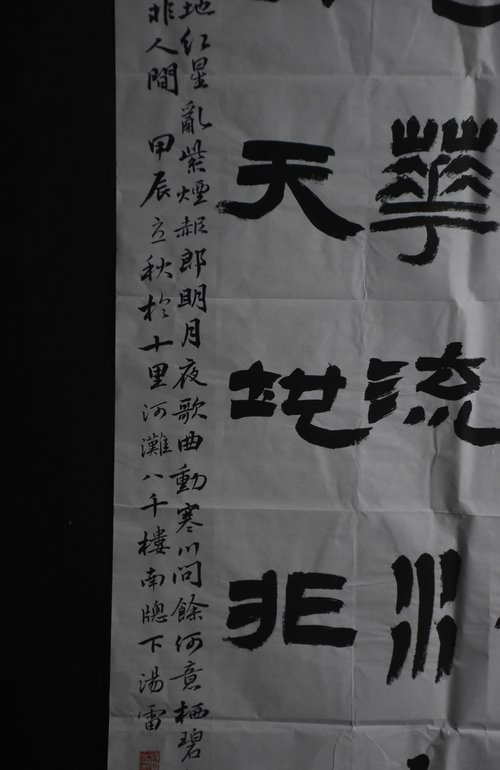 華流水
天地非
地红星亂紫煙赧郎明月夜歌曲動寒川問餘何意栖碧
非人間 甲辰立秋於十里河灘八千樓南牕下湯雷